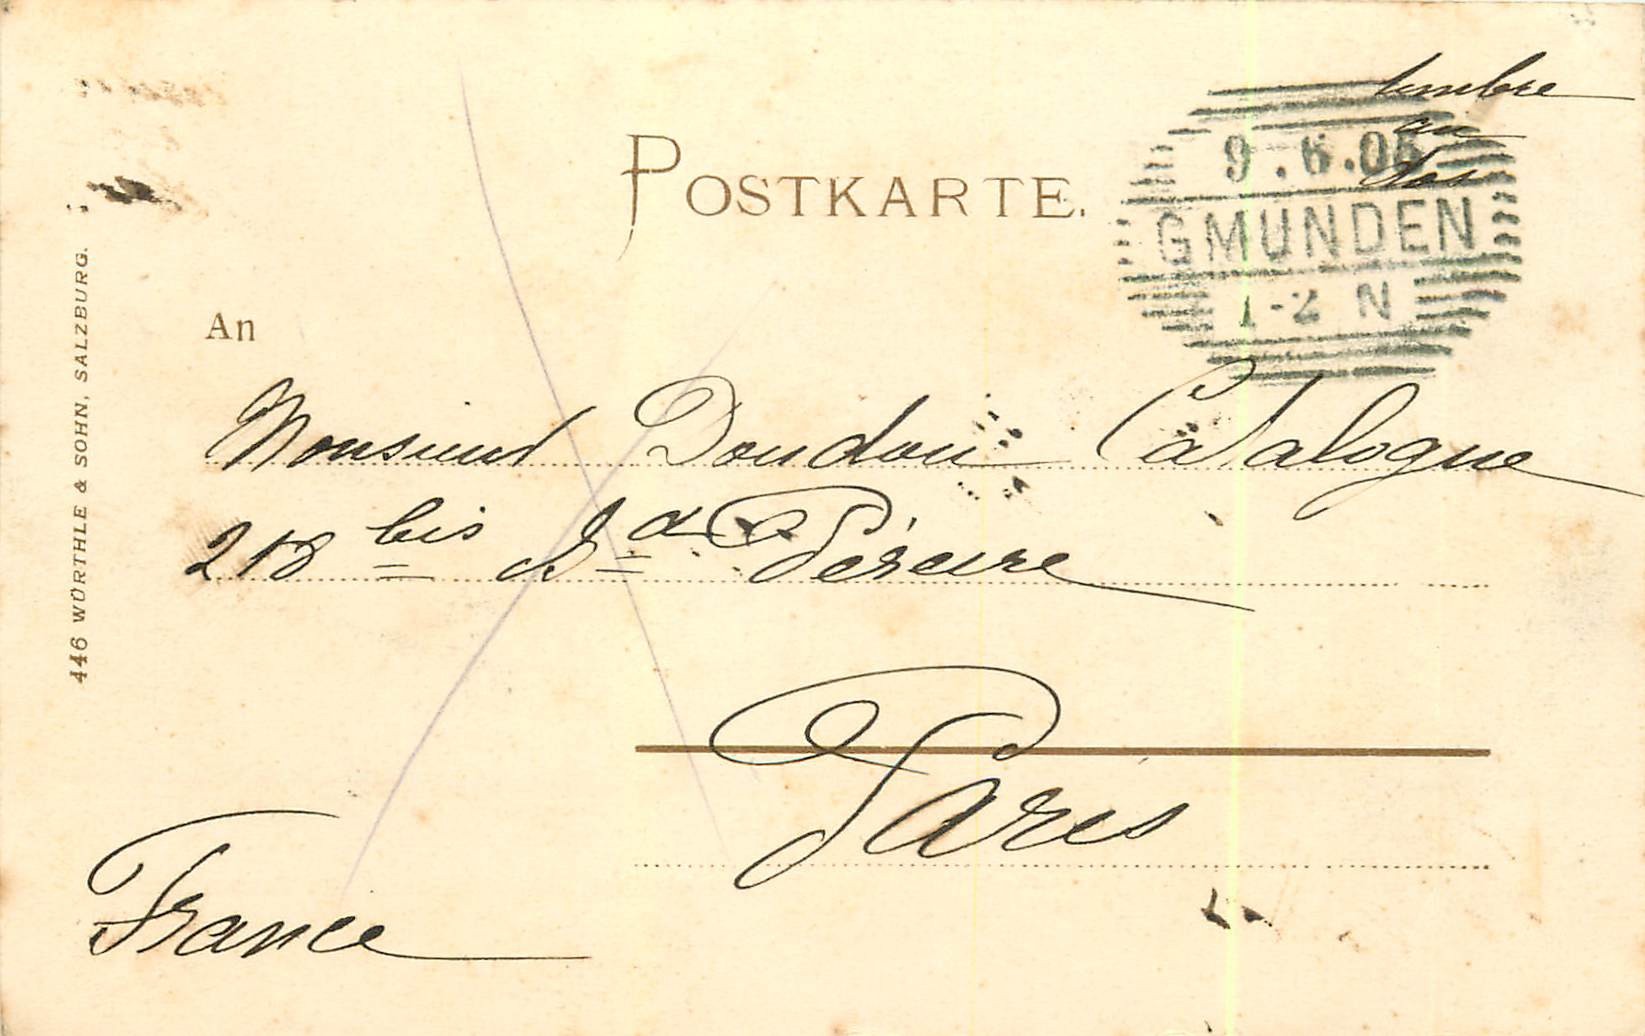 timbre
au
dos
POSTKARTE.
9.6.05
GMUNDEN
1-2 N
446 WÜRTHLE & SOHN, SALZBURG.
An
Monsieur Doudou Catalogue
218 bis Bd Péreire
Paris
France